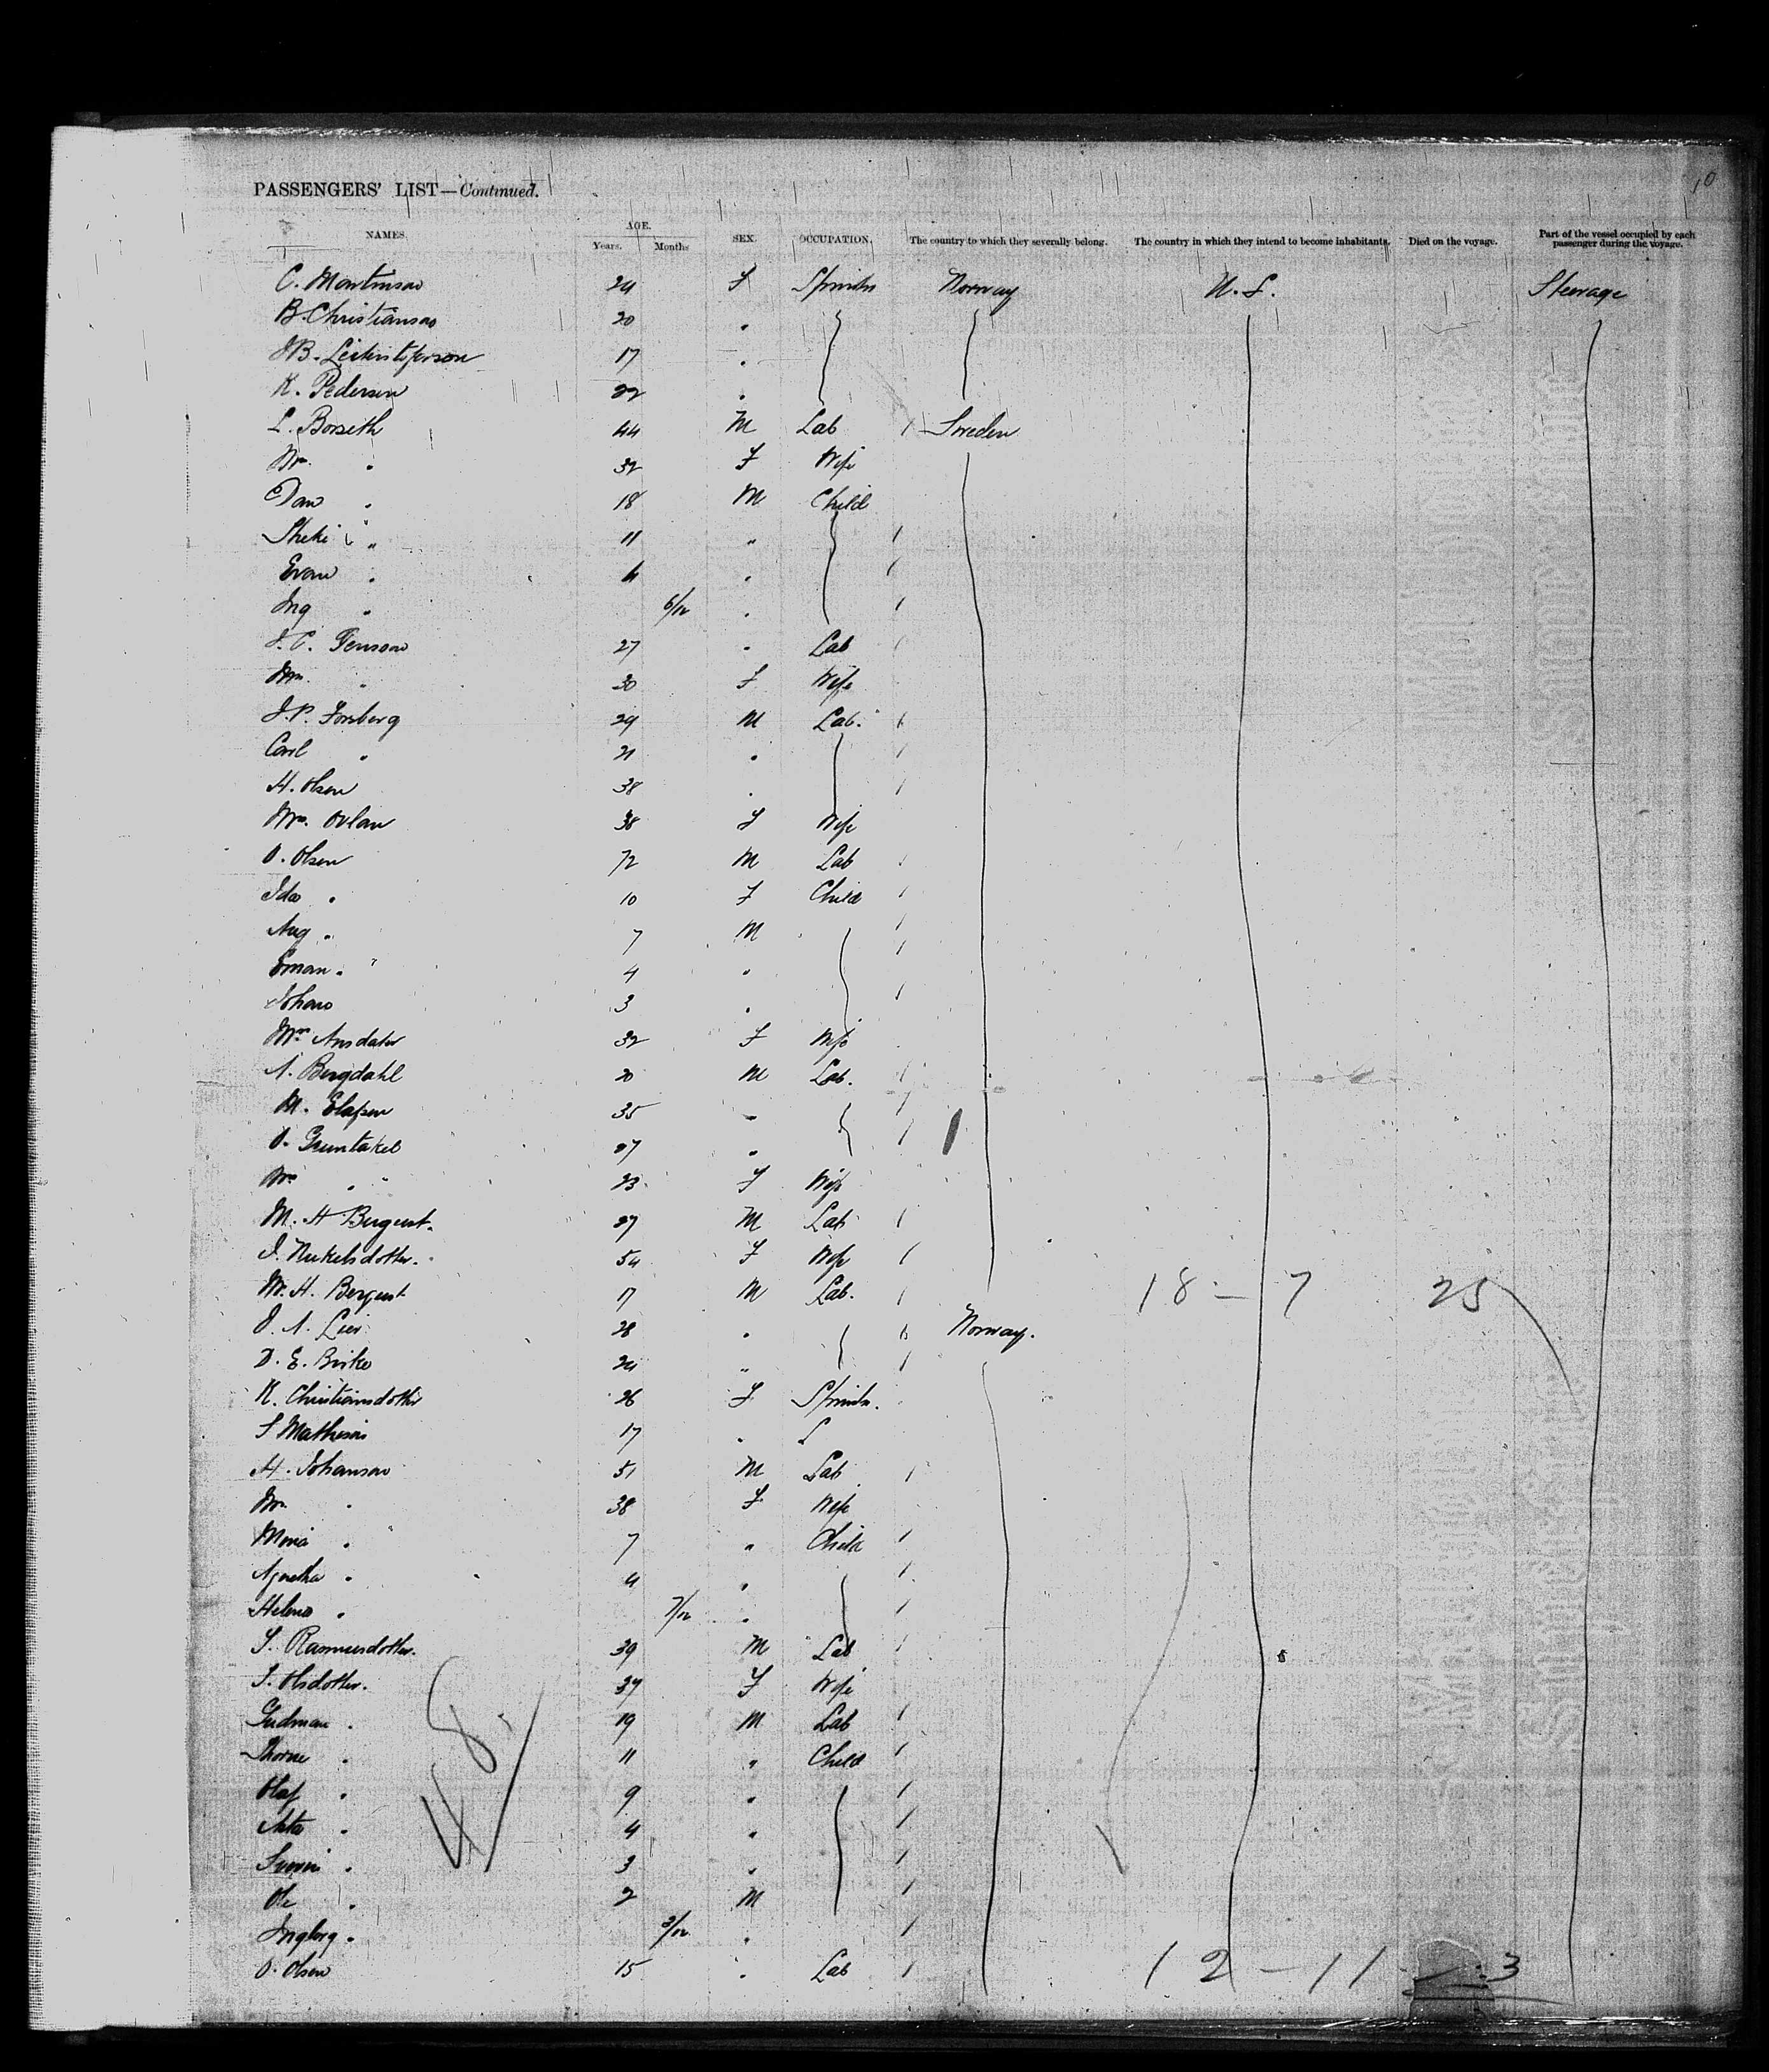 10
PASSENGERS' LIST—Continued.
NAMES. AGE. Years. Months SEX. OCCUPATION. The country to which they severally belong. The country in which they intend to become inhabitants. Died on the voyage. Part of the vessel occupied by each passenger during the voyage.
C. Martinson 24 F Norway U.S. Steerage
B. Christianson 20 "
17 "
K. Pedersen 22 "
L. Borseth 44 M Lab Sweden
Mrs. " 32 F Wife
Dan " 18 M Child
" 11 "
Evan " 4 "
Ing " 6/12 "
Jenson 27 " Lab
Mrs. " 30 F Wife
J.P. Forsberg 29 M Lab.
Carl " 21 "
H. Olsen 38 "
Mrs. 38 F Wife
O. Olsen 72 M Lab
Ida " 10 F Child
Aug " 7 M
Eman " 4 "
Johan 3 "
Mrs. 32 F Wife
A. Bergdahl 20 M Lab.
M. 35 "
O. 27 "
Mrs " 23 F Wife
M. H. 27 M Lab
54 F Wife
M. H. 17 M Lab.
18 - 7 25
28 " Norway.
24 "
K. Christiansdotter 26 F
17 "
H. Johanson 51 M Lab
Mrs. " 38 F Wife
Maria " 7 " Child
Agnetha " 4 "
Helena " 7/12 "
S. Rasmusdotter. 39 M Lab
Olsdotter. 37 F Wife
Gudman " 19 M Lab
" 11 " Child
Olaf " 9 "
" 4 "
" 3 "
Ole " 2 M
48
Ingborg " 3/12 "
O. Olsen 15 " Lab
12 - 11 3